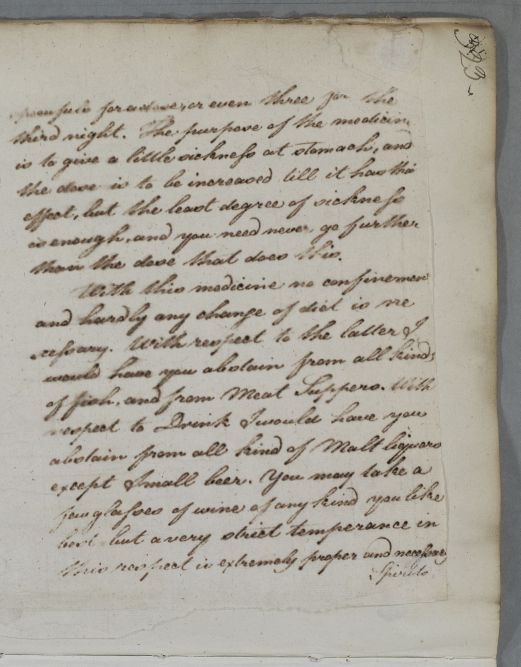 spoonfuls for a dose, or even three for the
third night. The purpose of the medicine
is to give a little sickness at stomach, and
the dose is to be increased till it has this
effect, but the least degree of sickness
is enough, and you need never go further
than the dose that does this.
With this medicine no confinement
and hardly any change of diet is ne
cessary. With respect to the latter I
would have you abstain from all kinds
of fish, and from Meat Suppers. With
respect to Drink I would have you
abstain from all kind of Malt liquors
except Small beer. You may take a
few glasses of wine of any kind you like
best but a very strict temperance in
this respect is extremely proper and necessary
Spirits